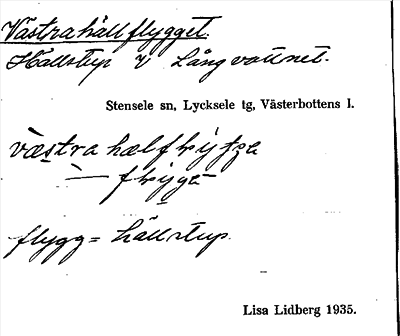 Västrahällflygget.
Hällstup V Långvattnet.
Stensele sn, Lycksele tg, Västerbottens l.
væstra
—
flygg = hällstup.
Lisa Lidberg 1935.